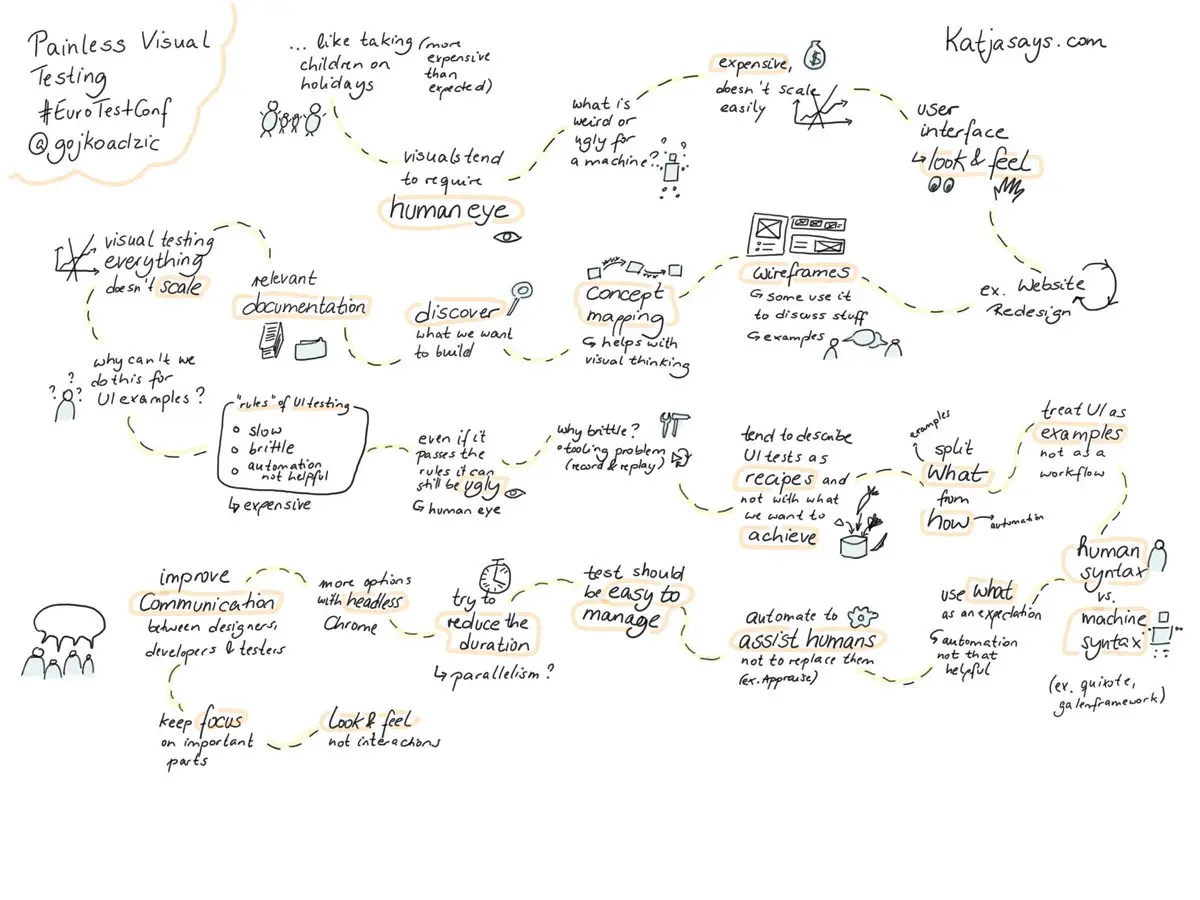 Painless Visual
Testing
#EuroTestConf
@gojkoadzic
... like taking
children on
holidays
(more
expensive
than
expected)
visuals tend
to require
human eye
what is
weird or
ugly for
a machine?
expensive,
doesn't scale
easily
$
Katjasays.com
user
interface
↳ look & feel
ex. Website
Redesign
wireframes
↳ some use it
to discuss stuff
↳ examples
concept
mapping
↳ helps with
visual thinking
discover
what we want
to build
relevant
documentation
visual testing
everything
doesn't scale
why can't we
do this for
UI examples?
? ? ?
"rules" of UI testing
• slow
• brittle
• automation
not helpful
↳ expensive
even if it
passes the
rules it can
still be ugly
↳ human eye
why brittle?
• tooling problem
(record & replay)
tend to describe
UI tests as
recipes and
not with what
we want to
achieve
examples
split
what
from
how → automation
treat UI as
examples
not as a
workflow
human
syntax
vs.
machine
syntax
(ex. quixote,
galenframework)
use what
as an expectation
↳ automation
not that
helpful
automate to
assist humans
not to replace them
(ex. Appraise)
test should
be easy to
manage
try to
reduce the
duration
↳ parallelism?
more options
with headless
Chrome
improve
Communication
between designers,
developers & testers
keep focus
on important
parts
look & feel
not interactions